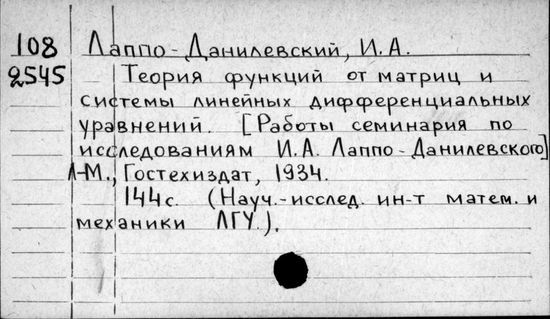 108 Лаппо-Данилевский, И.А.
2545 Теория функций от матриц и
системы линейных дифференциальных
уравнений. [Работы семинария по
исследованиям И.А. Лаппо-Данилевского]
Л-М., Гостехиздат, 1934.
144с. (Науч.-исслед. ин-т матем. и
механики ЛГУ.).